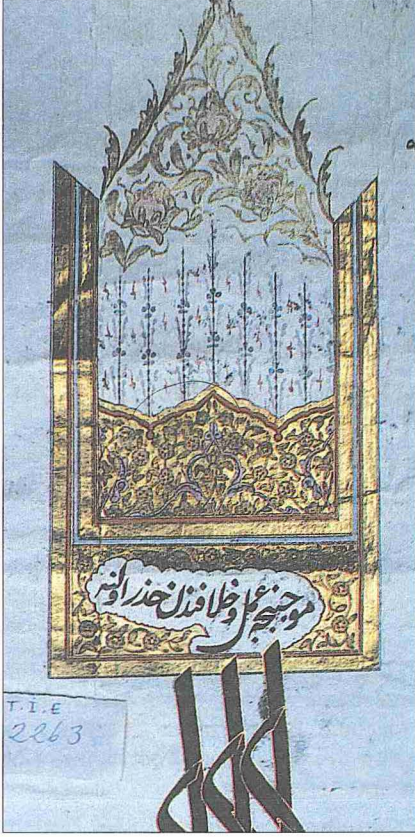 موجبنجه عمل و خلافندن حذر اولنه
T.İ.E
2263